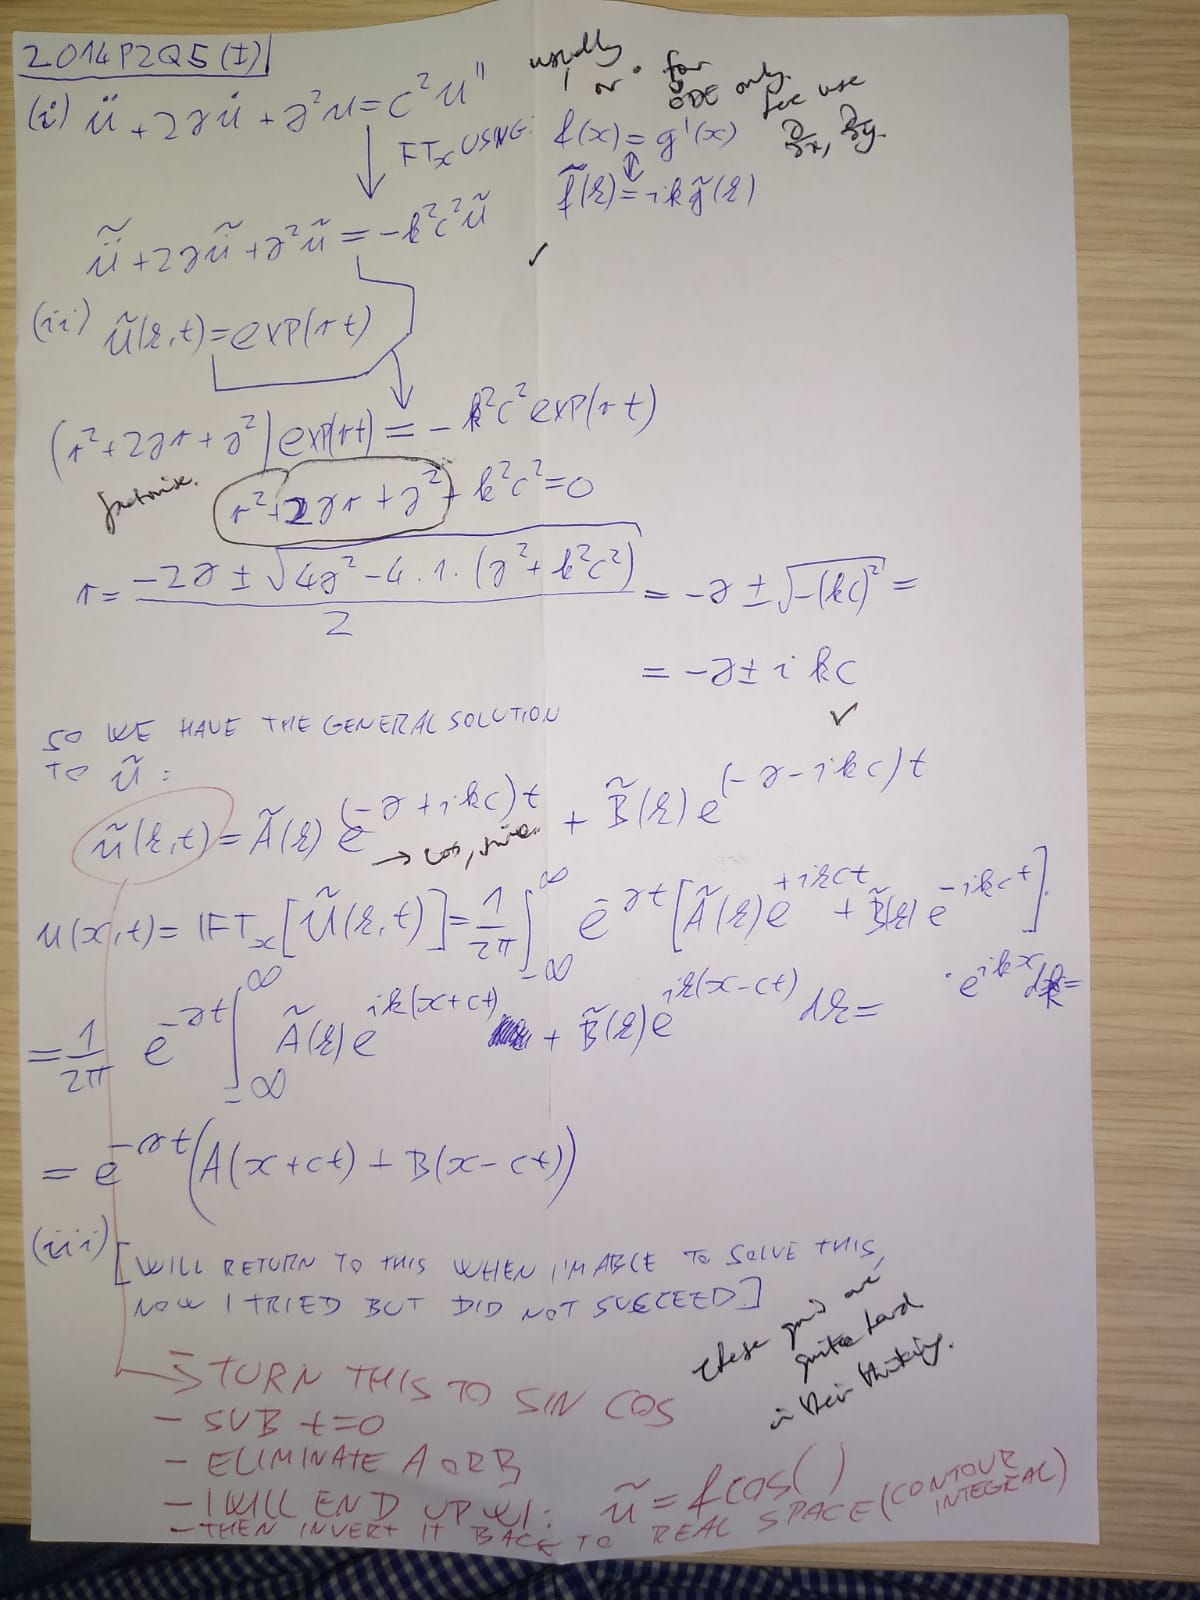 2014P2Q5(I)
(i) ü + 2γu̇ + γ²u = c²u''
usually ' or · for ODE only.
else use ∂/∂x, ∂/∂y.
FTₓ USING: f(x) = g'(x)
↕
f̃(k) = ikg̃(k)
ü̃ + 2γu̇̃ + γ²ũ = -k²c²ũ ✓
(ii) ũ(k,t) = exp(rt)
(r² + 2γr + γ²) exp(rt) = -k²c² exp(rt)
factorise.
r² + 2γr + γ² + k²c² = 0
r = (-2γ ± √(4γ² - 4·1·(γ² + k²c²)))/2 = -γ ± √(-(kc)²) =
= -γ ± ikc
✓
SO WE HAVE THE GENERAL SOLUTION
TO ũ:
ũ(k,t) = Ã(k) e^{(-γ+ikc)t} + B̃(k) e^{(-γ-ikc)t}
→ cos, sine.
u(x,t) = IFTₓ[ũ(k,t)] = 1/2π ∫_{-∞}^{∞} e^{-γt} [Ã(k)e^{+ikct} + B̃(k)e^{-ikct}].
·e^{ikx}dk =
= 1/2π e^{-γt} ∫_{-∞}^{∞} Ã(k)e^{ik(x+ct)} + B̃(k)e^{ik(x-ct)} dk =
= e^{-γt}(A(x+ct) + B(x-ct))
(iii) [WILL RETURN TO THIS WHEN I'M ABLE TO SOLVE THIS,
NOW I TRIED BUT DID NOT SUCCEED]
these are
quite hard
in their thinking.
→ TURN THIS TO SIN COS
- SUB t=0
- ELIMINATE A OR B
- I WILL END UP W/: ũ = f cos( )
- THEN INVERT IT BACK TO REAL SPACE (CONTOUR
INTEGRAL)